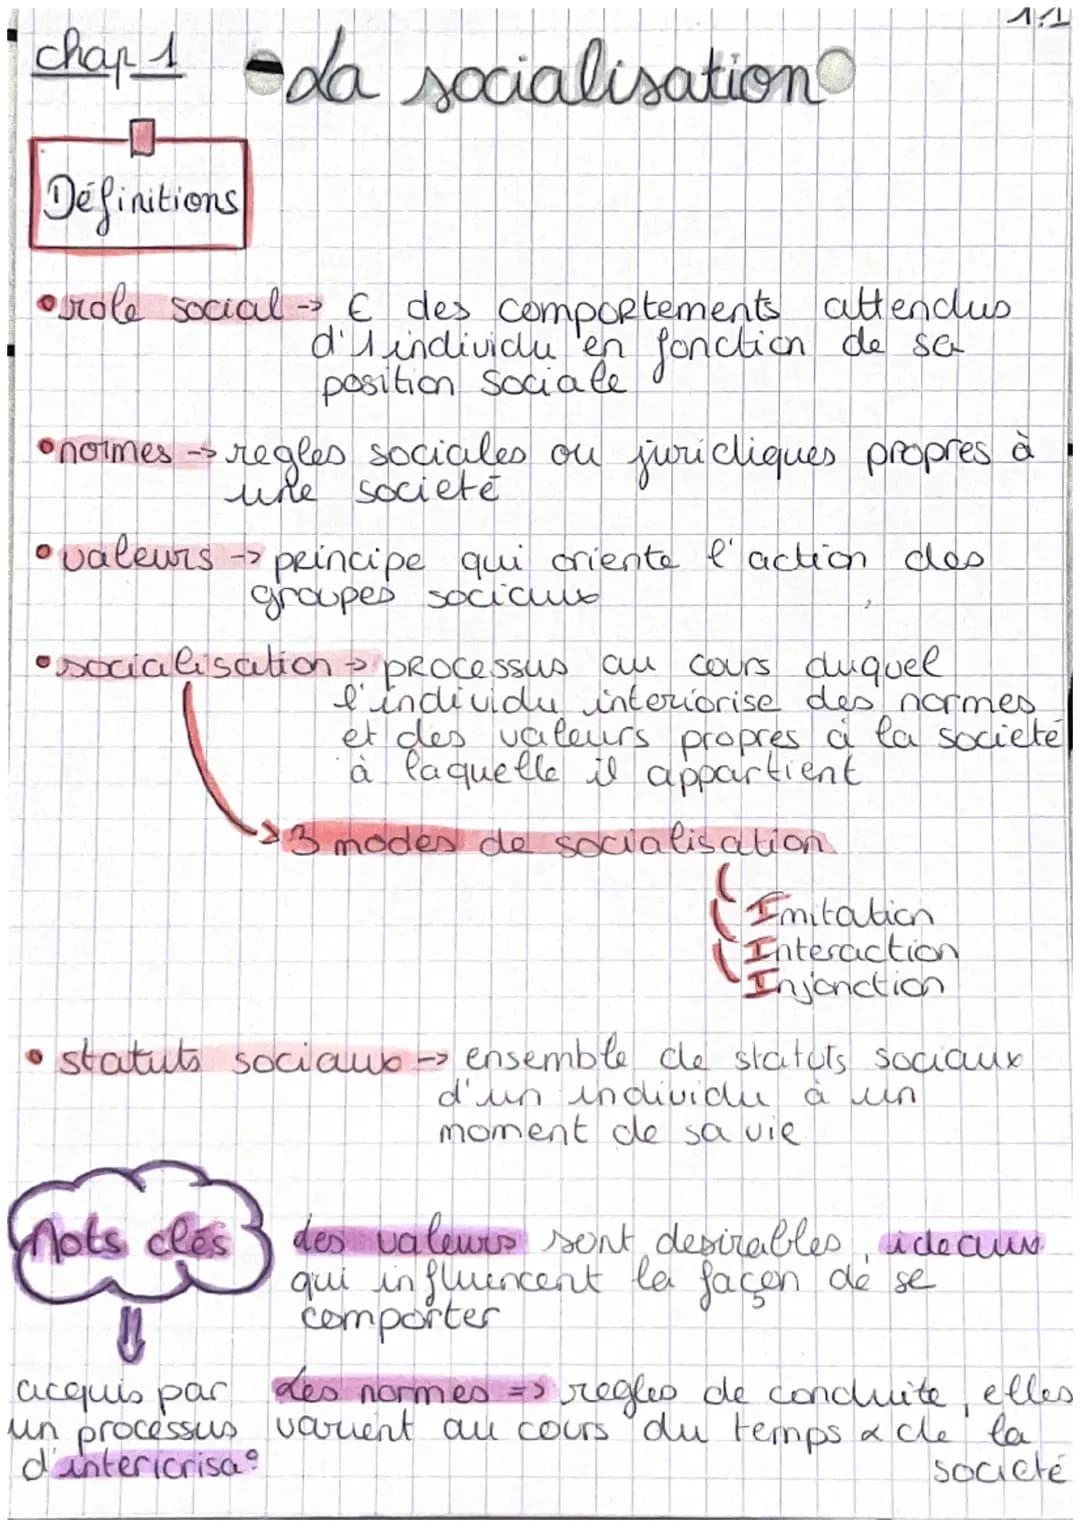 1.1
chap 1
La socialisation
Définitions
• role social -> € des comportements attendus
d'1 individu en fonction de sa
position sociale
• normes -> regles sociales ou juridiques propres à
une societé
• valeurs -> principe qui oriente l'action des
groupes sociaux
• socialisation -> processus au cours duquel
l'individu interiorise des normes
et des valeurs propres à la societé
à laquelle il appartient
-> 3 modes de socialisation
Imitation
Interaction
Injonction
• statuts sociaux -> ensemble de statuts sociaux
d'un individu à un
moment de sa vie
Mots clés
des valeurs sont desirables, ideaux
qui influencent la façon de se
comporter
acquis par
un processus
d'interiorisa°
Les normes => regles de conduite, elles
varient au cours du temps & de la
societé